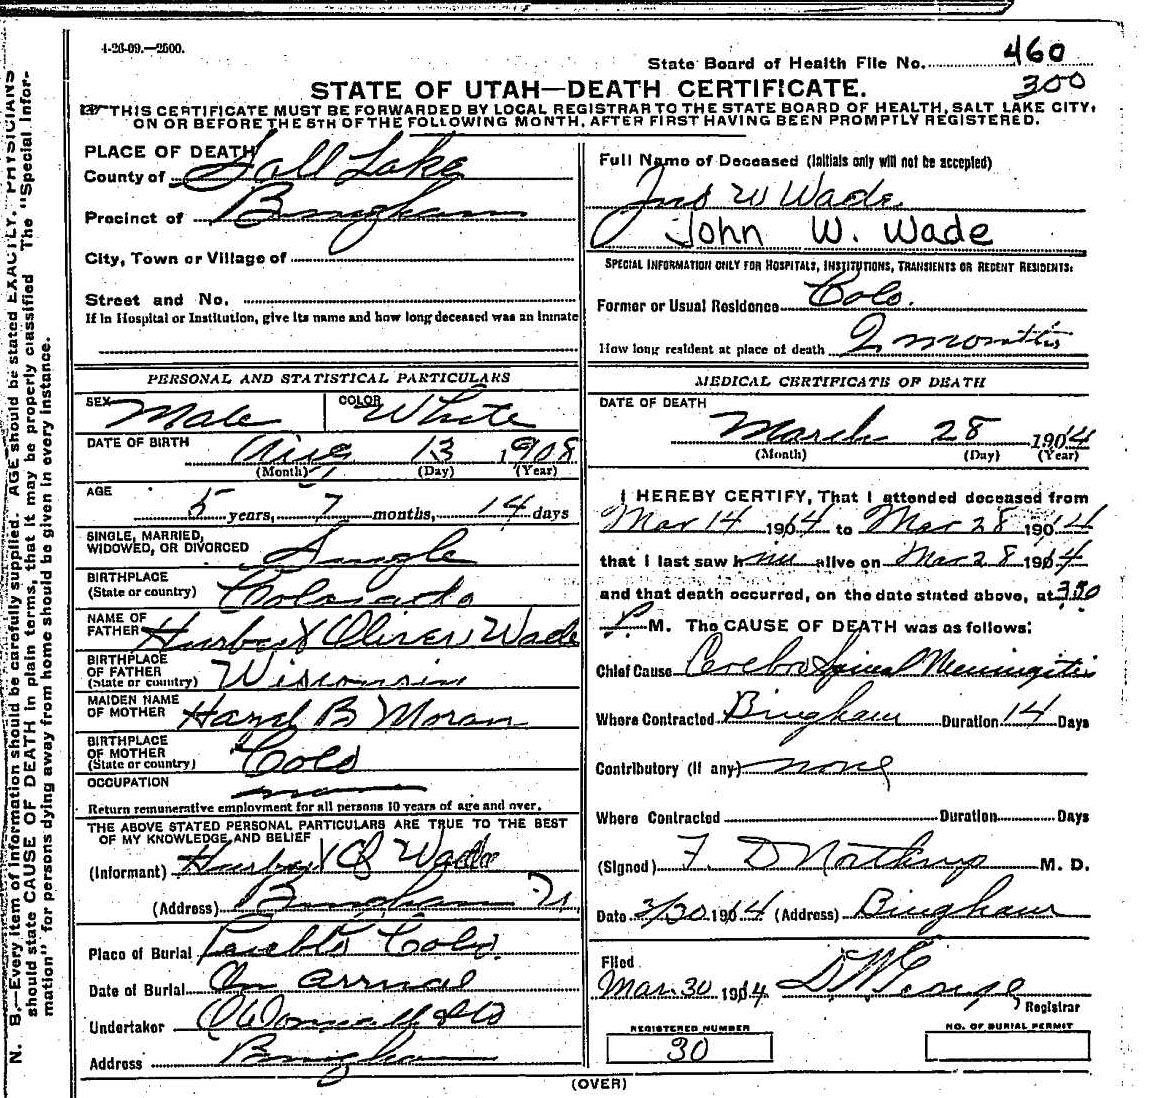 4-26-09.—2500.
State Board of Health File No. 460
300
STATE OF UTAH—DEATH CERTIFICATE.
THIS CERTIFICATE MUST BE FORWARDED BY LOCAL REGISTRAR TO THE STATE BOARD OF HEALTH, SALT LAKE CITY,
ON OR BEFORE THE 5TH OF THE FOLLOWING MONTH, AFTER FIRST HAVING BEEN PROMPTLY REGISTERED.
PLACE OF DEATH
County of Salt Lake
Precinct of Bingham
City, Town or Village of
Street and No.
If in Hospital or Institution, give its name and how long deceased was an inmate
PERSONAL AND STATISTICAL PARTICULARS
SEX Male COLOR White
DATE OF BIRTH Aug 13 1908
(Month) (Day) (Year)
AGE 5 years, 7 months, 14 days
SINGLE, MARRIED,
WIDOWED, OR DIVORCED Single
BIRTHPLACE
(State or country) Colorado
NAME OF
FATHER Oliver Wade
BIRTHPLACE
OF FATHER
(State or country) Wisconsin
MAIDEN NAME
OF MOTHER Hazel B Moran
BIRTHPLACE
OF MOTHER
(State or country) Colo
OCCUPATION
Return remunerative employment for all persons 10 years of age and over.
THE ABOVE STATED PERSONAL PARTICULARS ARE TRUE TO THE BEST
OF MY KNOWLEDGE AND BELIEF
(Informant) O Wade
(Address) Bingham
Place of Burial Pueblo Colo.
Date of Burial On arrival
Undertaker O'Donnell & Co
Address Bingham
Full Name of Deceased (Initials only will not be accepted)
Jno W Wade
John W. Wade
SPECIAL INFORMATION ONLY FOR HOSPITALS, INSTITUTIONS, TRANSIENTS OR RECENT RESIDENTS:
Former or Usual Residence Colo.
How long resident at place of death 2 months
MEDICAL CERTIFICATE OF DEATH
DATE OF DEATH
March 28 1914
(Month) (Day) (Year)
I HEREBY CERTIFY, That I attended deceased from
Mar 14 1914 to Mar 28 1914
that I last saw him alive on Mar 28 1914
and that death occurred, on the date stated above, at 350
P. M. The CAUSE OF DEATH was as follows:
Chief Cause Cerebro Spinal Meningitis
Where Contracted Bingham Duration 14 Days
Contributory (if any) none
Where Contracted Duration Days
(Signed) F. D Northrup M. D.
Date 3/30 1914 (Address) Bingham
Filed
Mar. 30 1914 D W George
Registrar
REGISTERED NUMBER
30
NO. OF BURIAL PERMIT
(OVER)
N. B.—Every item of information should be carefully supplied. AGE should be stated EXACTLY. PHYSICIANS
should state CAUSE OF DEATH in plain terms, that it may be properly classified. The "Special Infor-
mation" for persons dying away from home should be given in every instance.